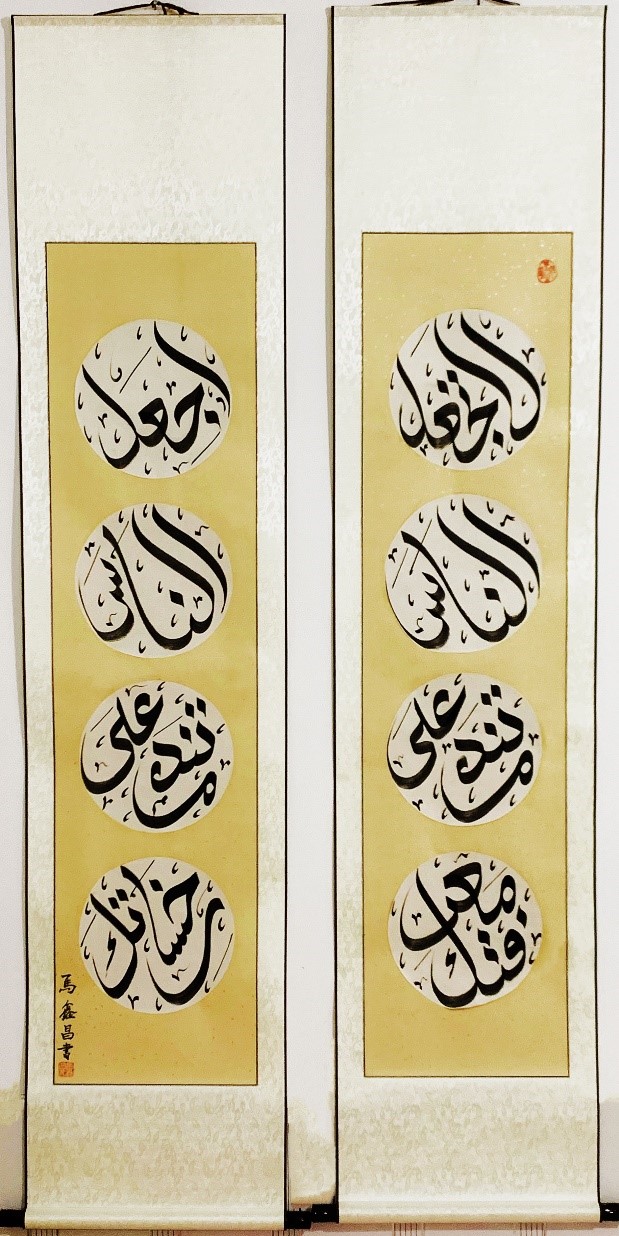 لا تجعل
الناس
تندم على
معرفتك
واجعل
الناس
تندم على
خسارتك
馬鑫昌書